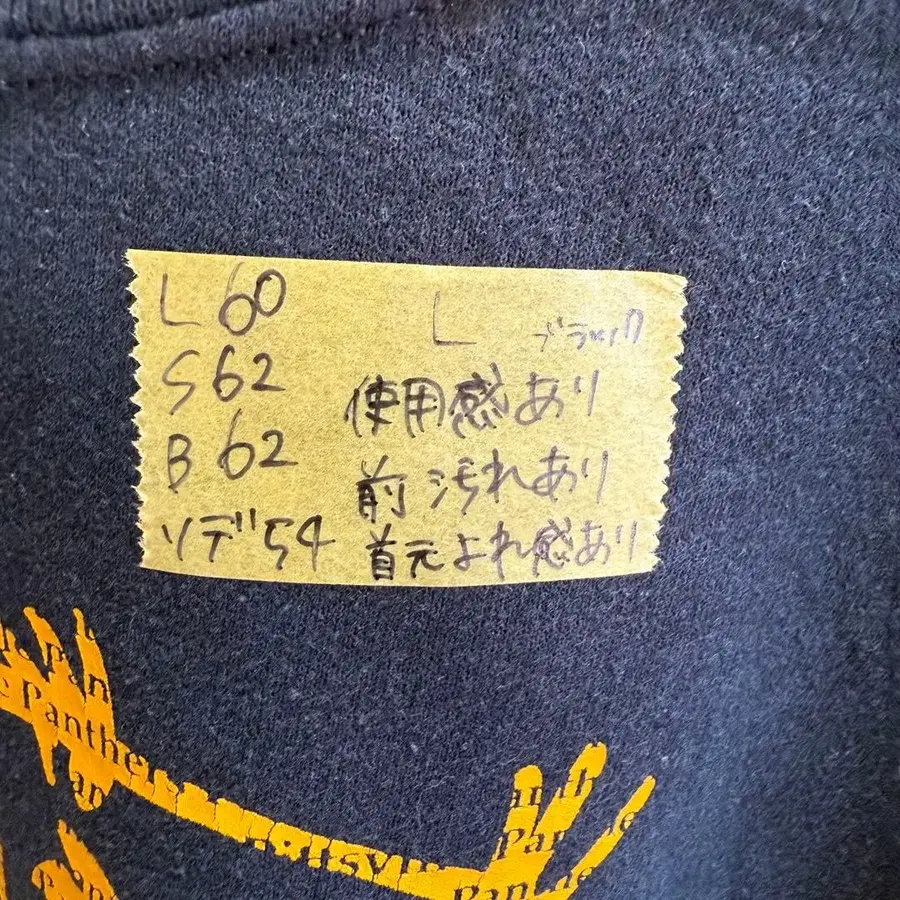 L 60
S 62
B 62
ソデ 54
L ブラック
使用感あり
前 汚れあり
首元よれ感あり
Pan
Panther
an
Par
Pan